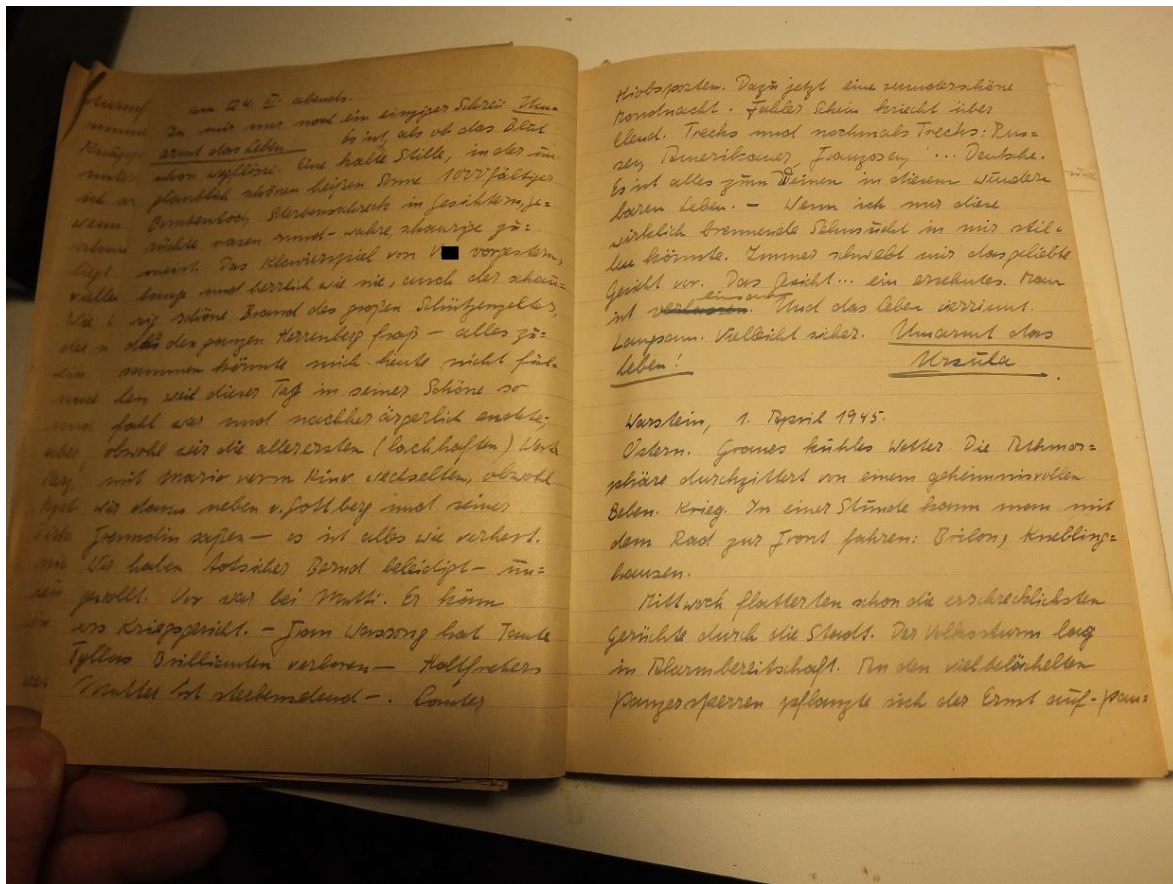 am 24. III. abends.
In mir nur noch ein einziger Schrei Um=
armt das Leben Es ist, als ob das Blut
schon wegflösse. Eine kalte Stille, in der un=
glaublich schönen heißen Sonne 1000fältiger
Bombentod, Sterbensschreck in Gesichtern, Ge=
rüchte rasen rund - wahre, shaurige zu=
meist. Das Klavierspiel von V vorgestern,
lange und herrlich wie nie, auch der schau=
rig schöne Brand des großen Schützenzeltes,
das den ganzen Herrenberg fraß - alles zu=
sammen könnte mich heute nicht fül=
len weil dieser Tag in seiner Schöne so
fahl war und nachher ärgerlich endete,
obwohl wir die allerersten (lachhaften) Worte
mit Mario vorm Kino wechselten, obwohl
wir dann neben v. Gottberg und seiner
Freundin saßen - es ist alles wie verhext.
Wir haben totsicher Bernd beleidigt - un=
gewollt. Vor war bei Mutti. Er käm
vors Kriegsgericht. - Frau Wassong hat Tante
Tyllas Brillianten verloren - Holtfreters
Mutter ist sterbenselend - . Lauter
Hiobsposten. Dazu jetzt eine wunderschöne
Mondnacht. Fahler Schein kriecht über
Elend. Trecks und nochmals Trecks: Rus=
sen, Amerikaner, Franzosen, ... Deutsche.
Es ist alles zum Weinen in diesem wunder=
baren Leben. - Wenn ich nur diese
wirklich brennende Sehnsucht in mir stil=
len könnte. Immer schwebt mir das geliebte
Gesicht vor. Das Gesicht... ein ersehntes. Man
ist verlassen einsam. Und das Leben verrinnt.
Langsam. Vielleicht sicher. Umarmt das
Leben! Ursula.
Warstein, 1. April 1945.
Ostern. Graues kühles Wetter. Die Athmos=
phäre durchzittert von einem geheimnisvollen
Beben. Krieg. In einer Stunde kann man mit
dem Rad zur Front fahren: Brilon, Knebling=
hausen.
Mittwoch flatterten schon die erschrecklichsten
Gerüchte durch die Stadt. Der Volkssturm lag
in Alarmbereitschaft. An den vielbelächelten
Panzersperren pflanzte sich der Ernst auf - pan=